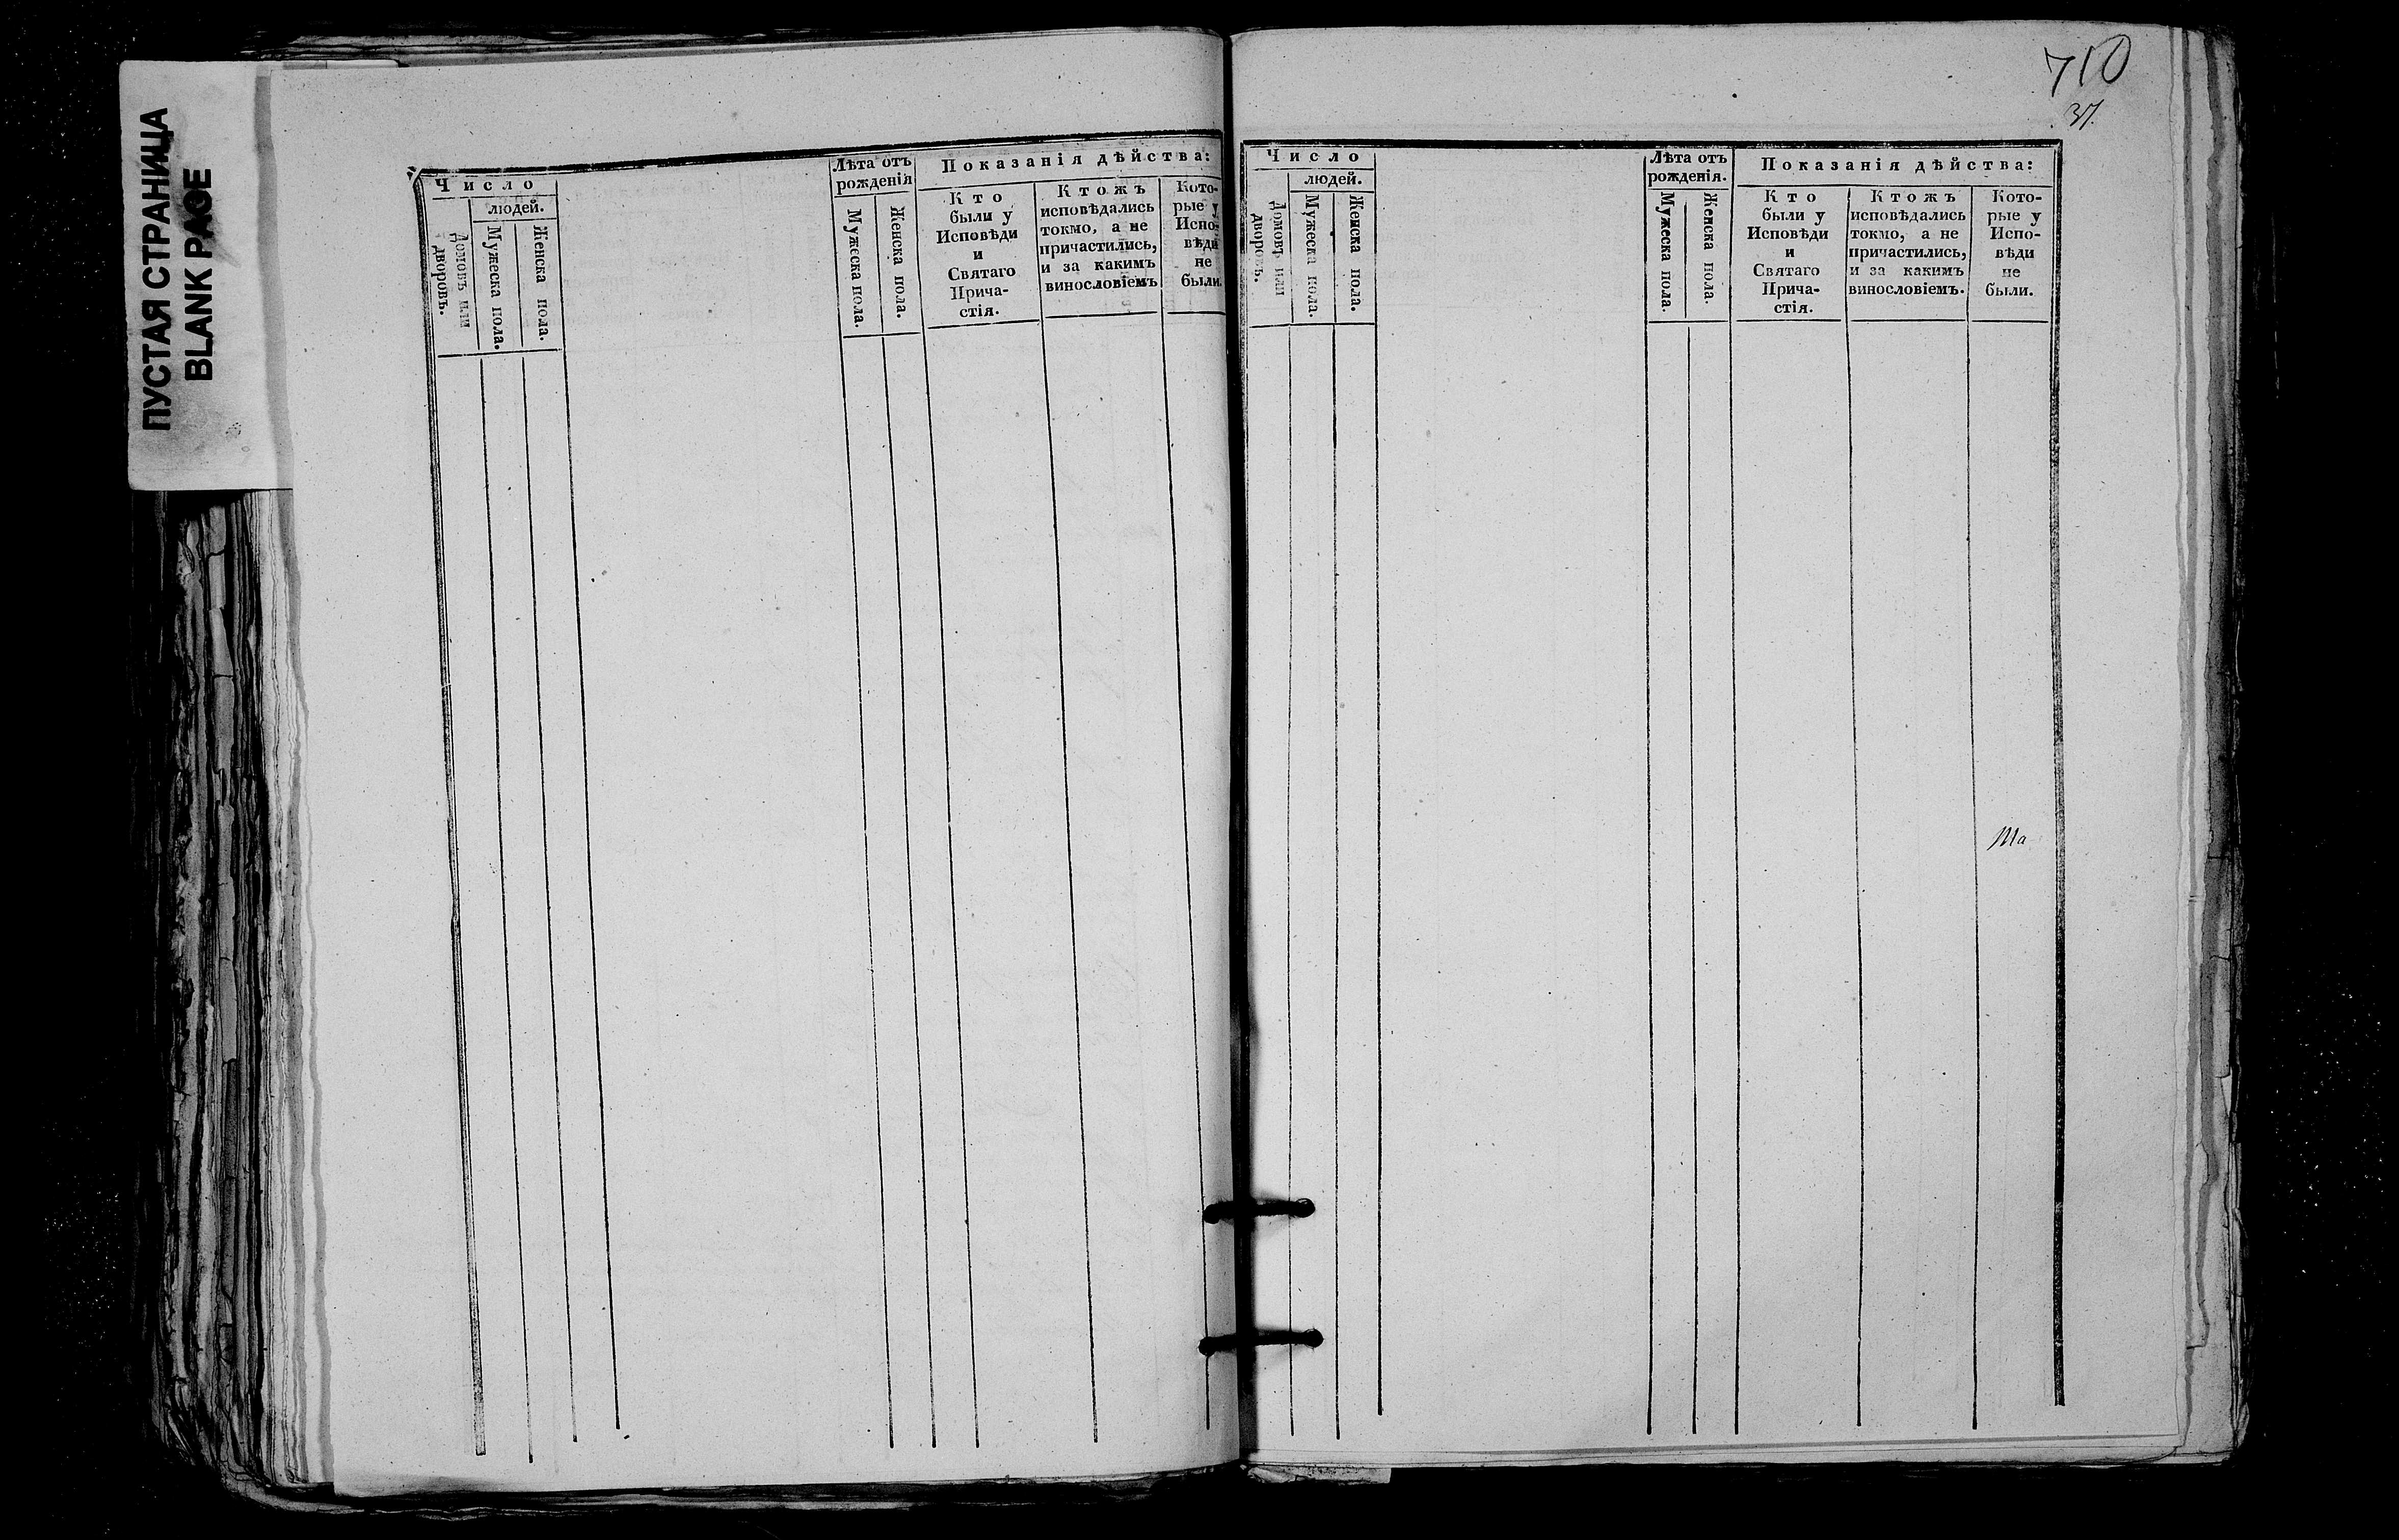 ПУСТАЯ СТРАНИЦА
BLANK PAGE
Число
людей.
Домовъ или
дворовъ.
Мужеска пола.
Женска пола.
Лѣта отъ
рожденія
Мужеска пола.
Женска пола.
Показанія дѣйства:
Кто
были у
Исповѣди
и
Святаго
Прича-
стія.
Ктожъ
исповѣдались
токмо, а не
причастились,
и за какимъ
винословіемъ
Кото-
рые у
Испо-
вѣди
не
были.
710
37.
Число
людей.
Домовъ или
дворовъ.
Мужеска пола.
Женска пола.
Лѣта отъ
рожденія.
Мужеска пола.
Женска пола.
Показанія дѣйства:
Кто
были у
Исповѣди
и
Святаго
Прича-
стія.
Ктожъ
исповѣдались
токмо, а не
причастились,
и за какимъ
винословіемъ.
Кото-
рые у
Испо-
вѣди
не
были.